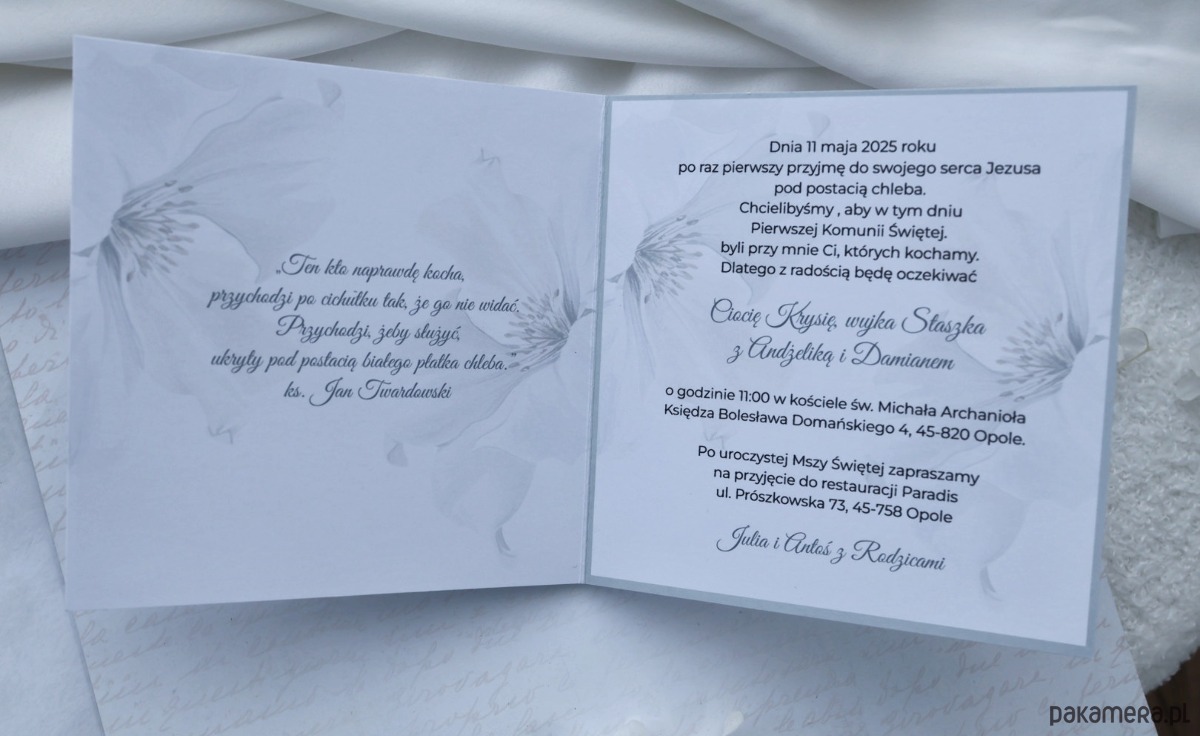 „Ten kto naprawdę kocha,
przychodzi po cichutku tak, że go nie widać.
Przychodzi, żeby służyć,
ukryty pod postacią białego płatka chleba."
ks. Jan Twardowski
Dnia 11 maja 2025 roku
po raz pierwszy przyjmę do swojego serca Jezusa
pod postacią chleba.
Chcielibyśmy , aby w tym dniu
Pierwszej Komunii Świętej.
byli przy mnie Ci, których kochamy.
Dlatego z radością będę oczekiwać
Ciocię Krysię, wujka Staszka
z Andżeliką i Damianem
o godzinie 11:00 w kościele św. Michała Archanioła
Księdza Bolesława Domańskiego 4, 45-820 Opole.
Po uroczystej Mszy Świętej zapraszamy
na przyjęcie do restauracji Paradis
ul. Prószkowska 73, 45-758 Opole
Julia i Antoś z Rodzicami
pakamera.pl